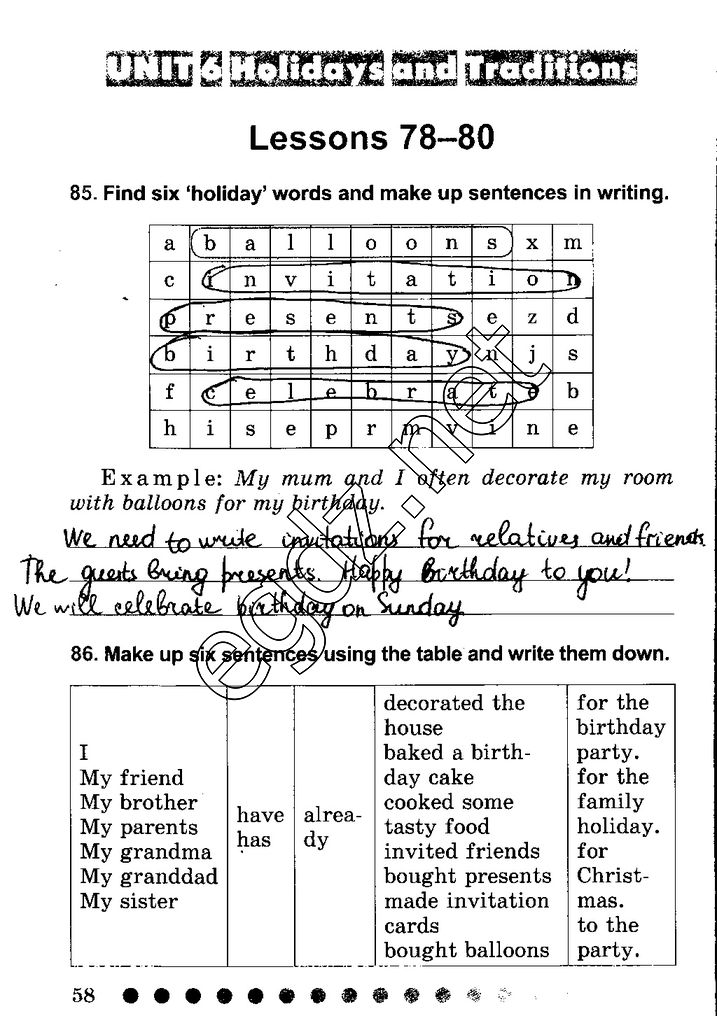 UNIT 6 Holidays and Traditions
Lessons 78–80
85. Find six ‘holiday’ words and make up sentences in writing.
a b a l l o o n s x m
c i n v i t a t i o n
p r e s e n t s e z d
b i r t h d a y n j s
f c e l e b r a t e b
h i s e p r m v i n e
Example: My mum and I often decorate my room
with balloons for my birthday.
We need to write invitations for relatives and friends
The guests bring presents. Happy Birthday to you!
We will celebrate birthday on Sunday
86. Make up six sentences using the table and write them down.
I
My friend
My brother
My parents
My grandma
My granddad
My sister
have
has
alrea-
dy
decorated the
house
baked a birth-
day cake
cooked some
tasty food
invited friends
bought presents
made invitation
cards
bought balloons
for the
birthday
party.
for the
family
holiday.
for
Christ-
mas.
to the
party.
58
egdz.net